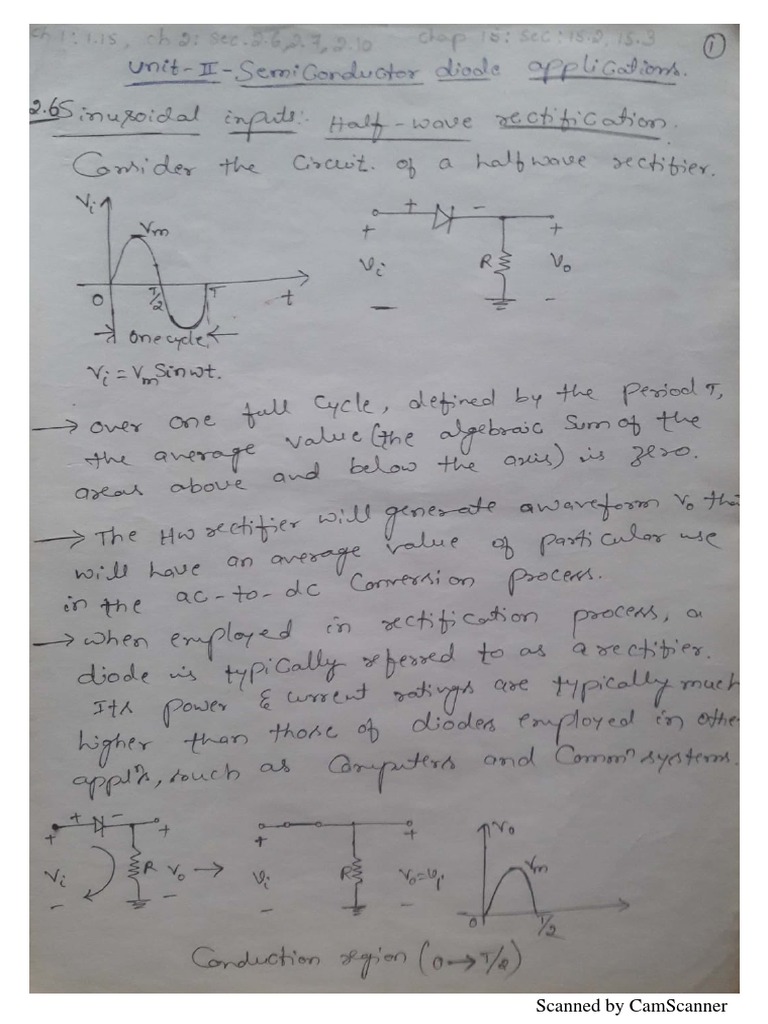 ch 1: 1.15, ch 2: sec. 2.6, 2.7, 2.10 chap 15: sec: 15.2, 15.3
1
Unit-II-SemiConductor diode applications.
2.6 Sinusoidal inputs: Half-wave rectification.
Consider the Circuit. of a halfwave rectifier.
Vi
Vm
+ -
+ +
Vi R Vo
0 T/2 T t
- -
one cycle
Vi = Vm Sinωt.
→ over one full cycle, defined by the period T,
the average value (the algebraic sum of the
areas above and below the axis) is zero.
→ The HW rectifier will generate a waveform Vo tha
will have an average value of particular use
in the ac-to-dc Conversion process.
→ When employed in rectification process, a
diode is typically referred to as a rectifier.
Its power & current ratings are typically much
higher than those of diodes employed in othe
appl^ns, such as Computers and Comm^n systems.
+ - + + + Vo
Vi R Vo → Vi R Vo=Vi Vm
- - - - 0 T/2
Conduction region (0→T/2)
Scanned by CamScanner